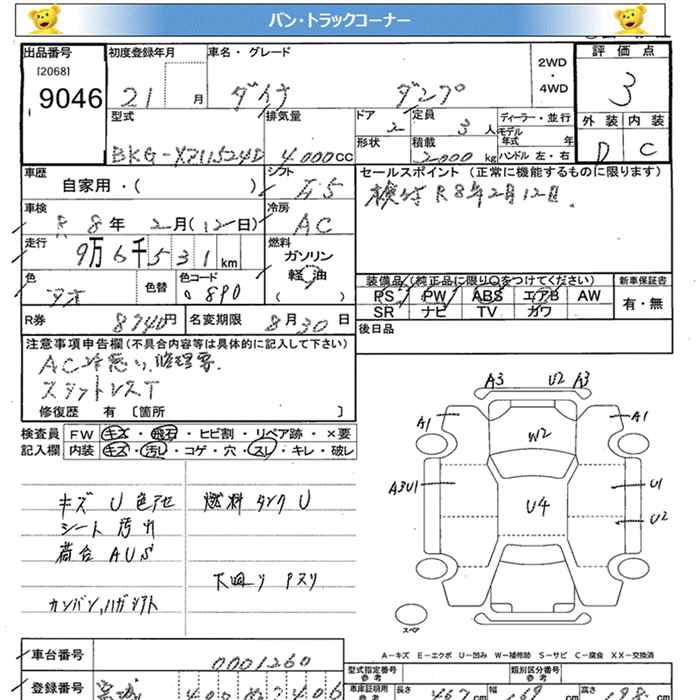 バン・トラックコーナー
出品番号
[2068]
9046
初度登録年月
21 月
車名・グレード
ダイナ ダンプ
2WD
・
4WD
評価点
3
外装 内装
D C
型式
BKG-XZU524D
排気量
4.000cc
ドア
2
定員
3人
形状
積載
2000kg
ディーラー・並行
モデル年式 年
ハンドル 左・右
車歴
自家用・( )
シフト
F5
セールスポイント (正常に機能するものに限ります)
検付 R8年2月12日.
車検
R8年2月(12日)
冷房
AC
走行
9万6千531km
燃料
ガソリン
軽油
( )
色
アオ
色替
色コード
890
装備品(純正品に限り○をつけてください)
PS PW ABS エアB AW
SR ナビ TV カワ
新車保証書
有・無
R券
8740円
名変期限
8月30日
後日品
注意事項申告欄(不具合内容等は具体的に記入して下さい)
AC冷悪い、修理要.
スタットレスT
修復歴 有 〔箇所 〕
検査員
記入欄
FW キズ・飛石・ヒビ割・リペア跡・×要
内装 キズ・汚レ・コゲ・穴・スレ・キレ・破レ
キズ U 色アセ
シート 汚れ
荷台 AUS
カンバン,ハガシアト
燃料 タンク U
下廻り Pスリ
A3 U2 A3
A1 A1
W2
A3U1
U4
U1
U2
スペア
A-キズ E-エクボ U-凹み W-補修跡 S-サビ C-腐食 XX-交換済
車台番号
0001260
登録番号
型式指定番号
参考
類別区分番号
参考
車庫証明用
参考
長さ
467cm
幅
168
高さ
198cm